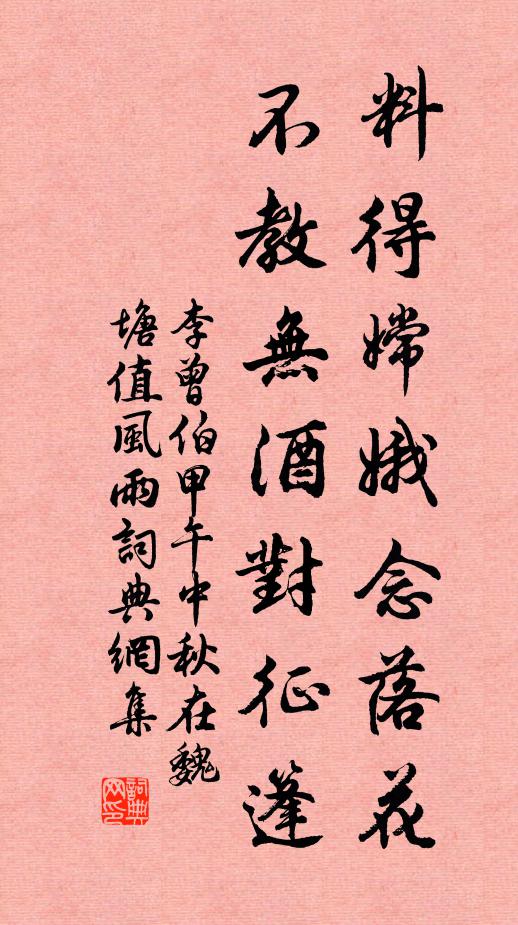 料得嫦娥念落花
不教無酒對征篷
李曾伯甲午中秋在魏
塘值風雨詞典網集
詞典
网印